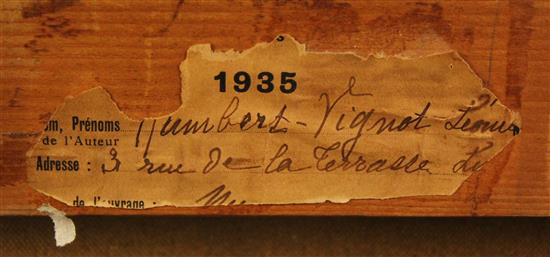 1935
om, Prénoms Humbert - Vignot Léonie
de l'Auteur
Adresse : 3 rue de la Terrasse
de l'ouvrage :